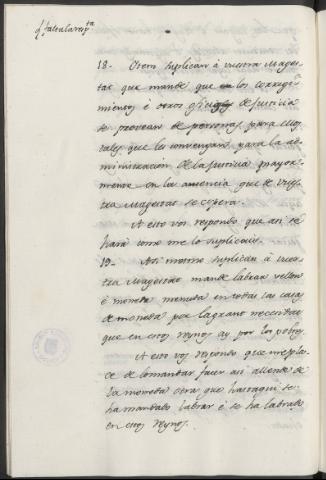 q.e falta la resp.ta
18- Otrosi suplican à vuestra Mages-
tad que mande que en los corregi-
mientos è otros oficios de Justicia
se provean de personas para ellos
tales que les convengan para la ad-
ministracion de la Justicia mayor-
mente en la ausencia que de Vues-
tra Magestad se espera.
A esto vos respondo que asi se
hará como me lo suplicais.
19- Asi mismo suplican à vues-
tra Magestad mande labrar vellon
è moneda menuda en todas las casas
de moneda por la grant necesidad
que en estos reynos ay por los pobres.
A esto vos respondo que me pla-
ce de lo mandar facer asi allende de
la moneda otra que hasta aqui se
ha mandado labrar è se ha labrado
en estos reynos.